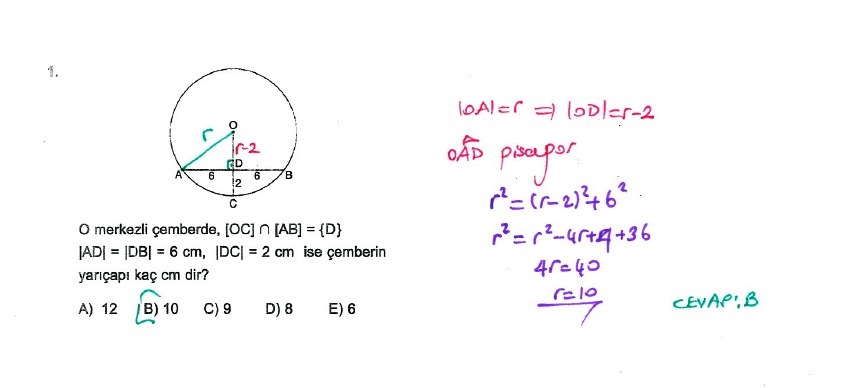 1.
O
r
r-2
D
A
6
6
B
2
C
O merkezli çemberde, [OC] ∩ [AB] = {D}
|AD| = |DB| = 6 cm, |DC| = 2 cm ise çemberin
yarıçapı kaç cm dir?
A) 12 B) 10 C) 9 D) 8 E) 6
|OA|=r ⇒ |OD|=r-2
OAD pisagor
r²=(r-2)²+6²
r²=r²-4r+4+36
4r=40
r=10
CEVAP: B